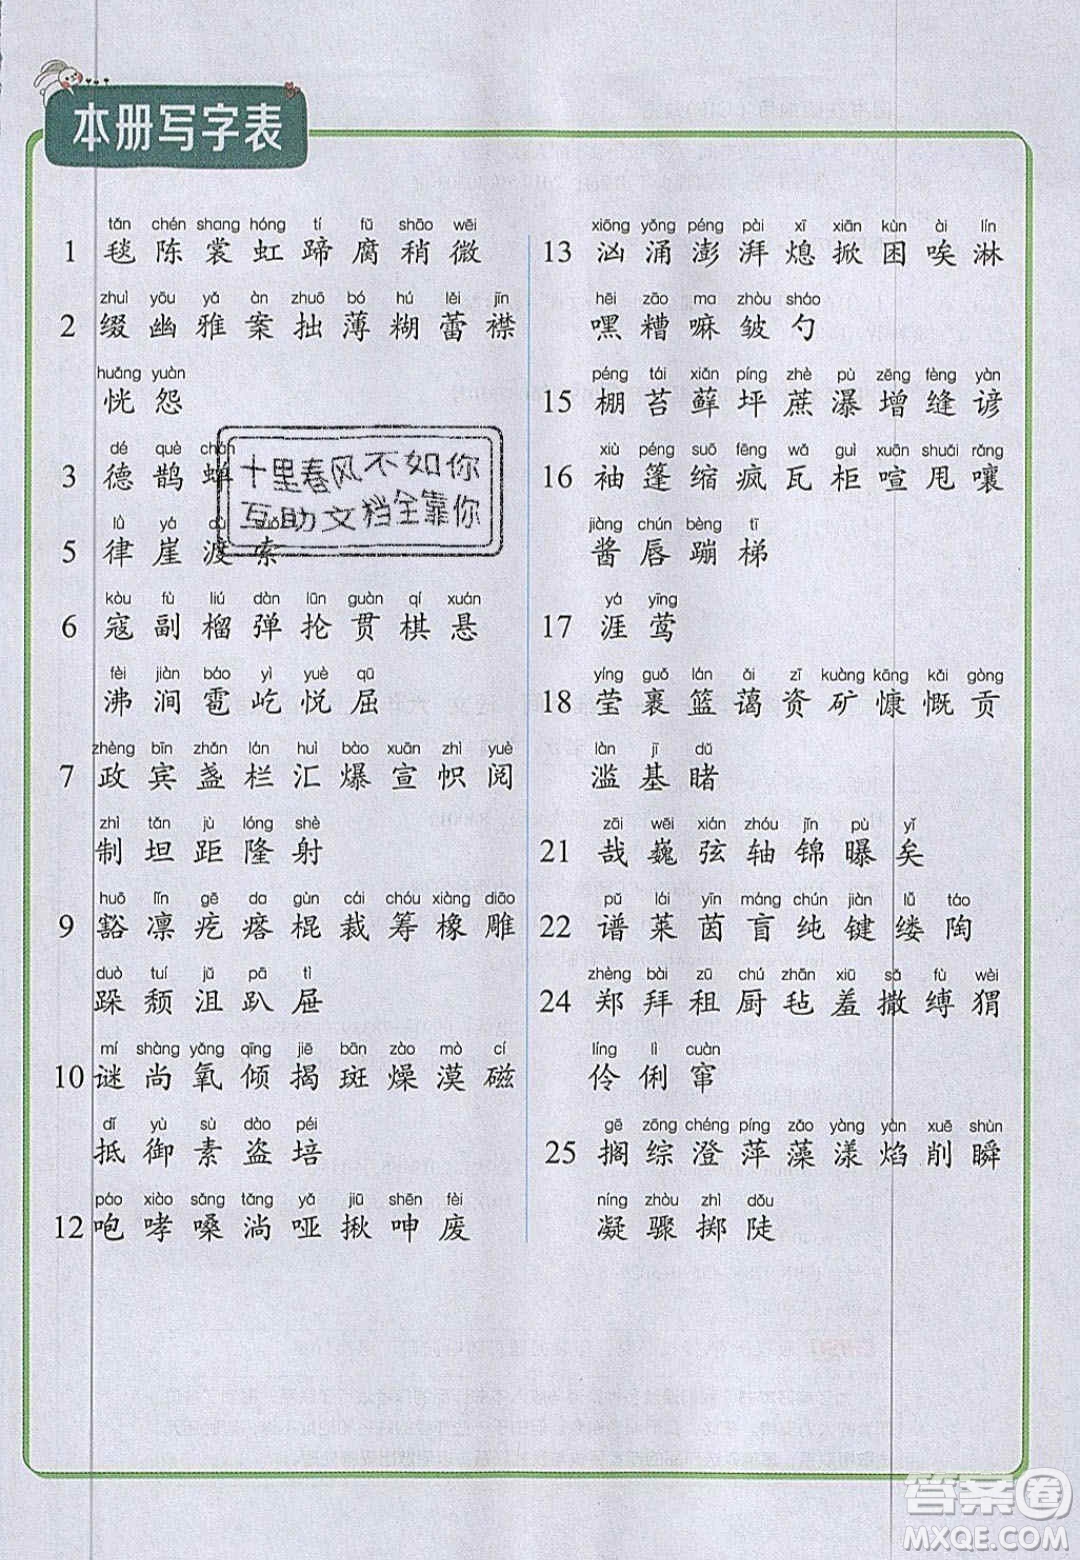 本册写字表
tǎn chén shang hóng tí fǔ shāo wēi
1 毯 陈 裳 虹 蹄 腐 稍 微
zhuì yōu yǎ àn zhuō bó hú lěi jīn
2 缀 幽 雅 案 拙 薄 糊 蕾 襟
huǎng yuàn
恍 怨
dé què
3 德 鹊 蝉
lǜ yá dù
5 律 崖 渡 索
kòu fù liú dàn lūn guàn qí xuán
6 寇 副 榴 弹 抡 贯 棋 悬
fèi jiàn báo yì yuè qū
沸 涧 雹 屹 悦 屈
zhèng bīn zhǎn lán huì bào xuān zhì yuè
7 政 宾 盏 栏 汇 爆 宣 帜 阅
zhì tǎn jù lóng shè
制 坦 距 隆 射
huō lǐn gē da gùn cái chóu xiàng diāo
9 豁 凛 疙 瘩 棍 裁 筹 橡 雕
duò tuí jǔ pā tì
跺 颓 沮 趴 屉
mí shàng yǎng qīng jiē bān zào mò cí
10 谜 尚 氧 倾 揭 斑 燥 漠 磁
dǐ yù sù dào péi
抵 御 素 盗 培
páo xiào sǎng tǎng yǎ jiū shēn fèi
12 咆 哮 嗓 淌 哑 揪 呻 废
xiōng yǒng péng pài xī xiān kùn ài lín
13 汹 涌 澎 湃 熄 掀 困 唉 淋
hēi zāo ma zhòu sháo
嘿 糟 嘛 皱 勺
péng tái xiǎn píng zhè pù zēng fèng yàn
15 棚 苔 藓 坪 蔗 瀑 增 缝 谚
xiù péng suō fēng wǎ guì xuān shuǎi rǎng
16 袖 篷 缩 疯 瓦 柜 喧 甩 嚷
jiàng chún bèng tī
酱 唇 蹦 梯
yá yīng
17 涯 莺
yíng guǒ lán ǎi zī kuàng kāng kǎi gòng
18 莹 裹 篮 蔼 资 矿 慷 慨 贡
làn jī dǔ
滥 基 睹
zāi wēi xián zhóu jǐn pù yǐ
21 哉 巍 弦 轴 锦 曝 矣
pǔ lái yīn máng chún jiàn lǚ táo
22 谱 莱 茵 盲 纯 键 缕 陶
zhèng bài zū chú zhān xiū sā fù wèi
24 郑 拜 租 厨 毡 羞 撒 缚 猬
líng lì cuàn
伶 俐 窜
gē zōng chéng píng zǎo yàng yàn xuē shùn
25 搁 综 澄 萍 藻 漾 焰 削 瞬
níng zhòu zhì dǒu
凝 骤 掷 陡
十里春风不如你
互助文档全靠你
答案圈
MXQE.COM